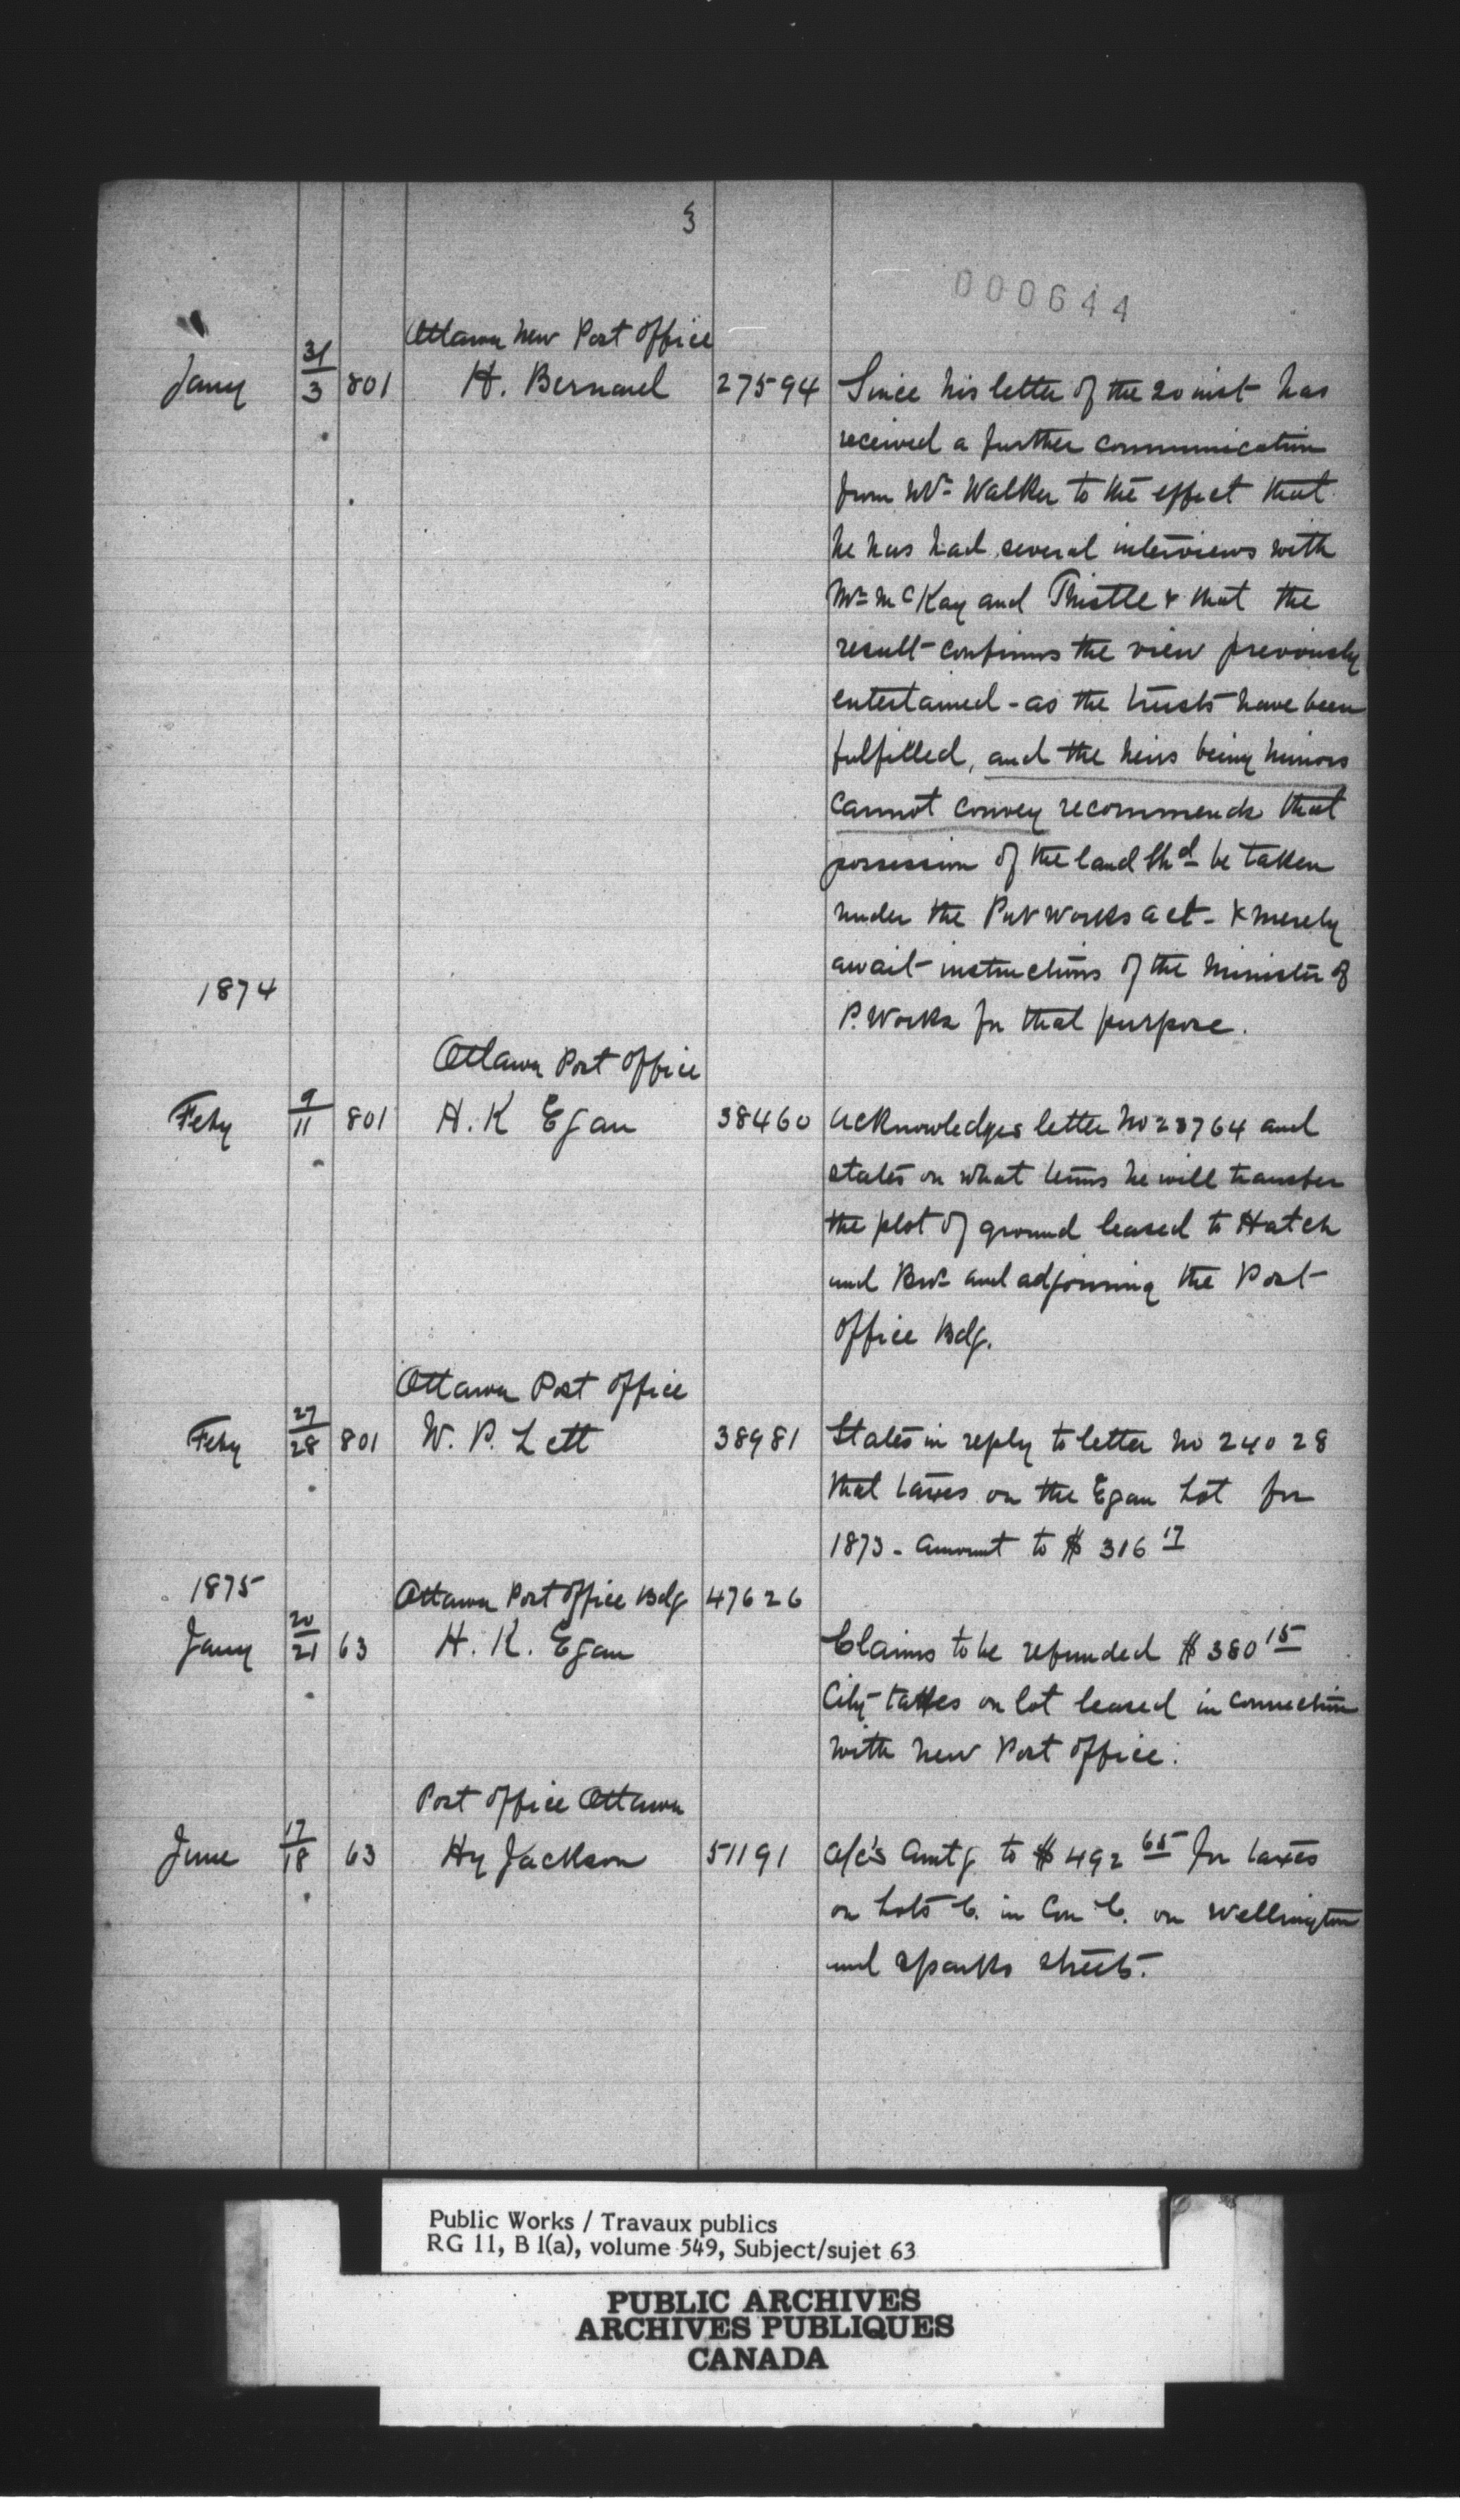 3
000644
Ottawa New Post Office
Jany 31/3 801 H. Bernard 27594 Since his letter of the 20 inst has
received a further communication
from Mr Walker to the effect that
he has had several interviews with
Mr McKay and Thistle & that the
result confirms the view previously
entertained - as the trusts have been
fulfilled, and the heirs being minors
cannot convey recommends that
possession of the land shd be taken
under the Pub Works act - & merely
await instructions of the Minister of
1874
P. Works for that purpose.
Ottawa Post Office
Feby 9/11 801 H. K Egan 38460 acknowledges letter No 23764 and
states on what terms he will transfer
the plot of ground leased to Hatch
and Bro. and adjoining the Post
Office Bdg.
Ottawa Post Office
Feby 27/28 801 W. P. Lett 38981 States in reply to letter No 24028
that taxes on the Egan Lot for
1873 - amount to $ 316 17
1875 Ottawa Post Office Bdg 47626
Jany 20/21 63 H. K. Egan Claims to be refunded $ 380 15
City taxes on lot leased in connection
with New Post Office.
Post Office Ottawa
June 17/18 63 Hy Jackson 51191 a/c's amtg to $ 492 65 for taxes
on Lots C. in Con C. on Wellington
and Sparks streets.
Public Works / Travaux publics
RG 11, B 1(a), volume 549, Subject/sujet 63
PUBLIC ARCHIVES
ARCHIVES PUBLIQUES
CANADA